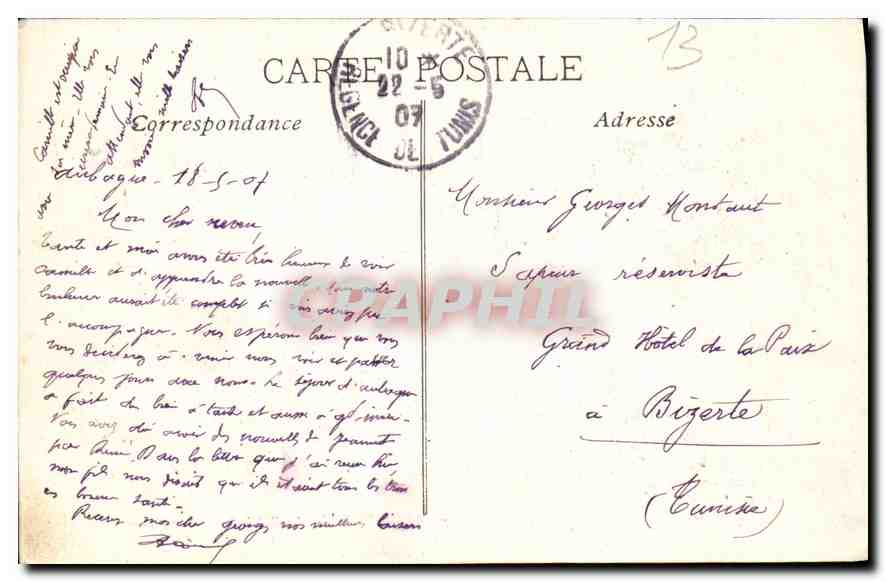 13
BIZERTE
10
22 - 5
07
REGENCE DE TUNIS
CARTE POSTALE
Correspondance
Adresse
Camille est
Elle vous
attendant elle vous
mille baisers
Aubagne - 18-5-07
Mon cher neveu,
Tante et moi avons été très heureux de voir
Camille et d'apprendre la nouvelle, mais notre
bonheur aurait été complet si vous aviez pu
l'accompagner. Vous espérons bien que vous
vous déciderez à venir nous voir et passer
quelques jours avec nous. Le séjour d'Aubagne
a fait du bien à tante et aussi à
Vous avez dû avoir des nouvelles de Jeannot
par René. Dans la lettre que j'ai reçue hier,
mon fils nous disait qu'ils étaient tous les trois
en bonne santé.
Recevez mon cher Georges nos meilleurs baisers
CPAPHIL
Monsieur Georges Montaut
Sapeur réserviste
Grand Hôtel de la Paix
à Bizerte
(Tunisie)